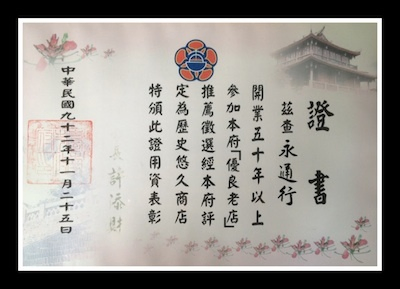 證書
茲查永通行
開業五十年以上
參加本府「優良老店」
推薦徵選經本府評
定為歷史悠久商店
特頒此證用資表彰
長許添財
中華民國九十二年十一月二十五日